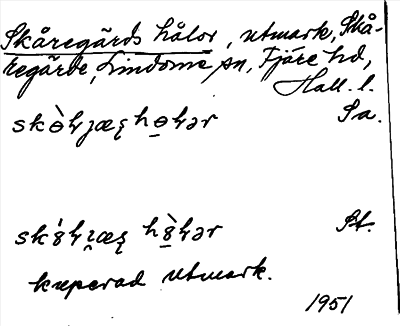 Skåregärds hålor, utmark, Skå-
regärde, Lindome sn, Fjäre hd,
Hall. l.
skɵ̀ɦjæʂ hɵ̱ɦər Sa.
skȣ́ɦj̭æʂ hȣ̱̀ɦər St.
kuperad utmark.
1951